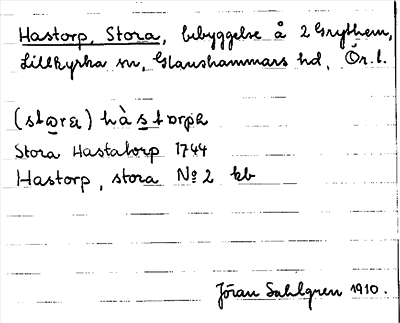 Hastorp, Stora, bebyggelse å 2 Grythem,
Lillkyrka sn, Glanshammars hd, Ör. l.
(stωra) hàstωrpa
Stora Hastatorp 1744
Hastorp, stora № 2 kb
Jöran Sahlgren 1910.